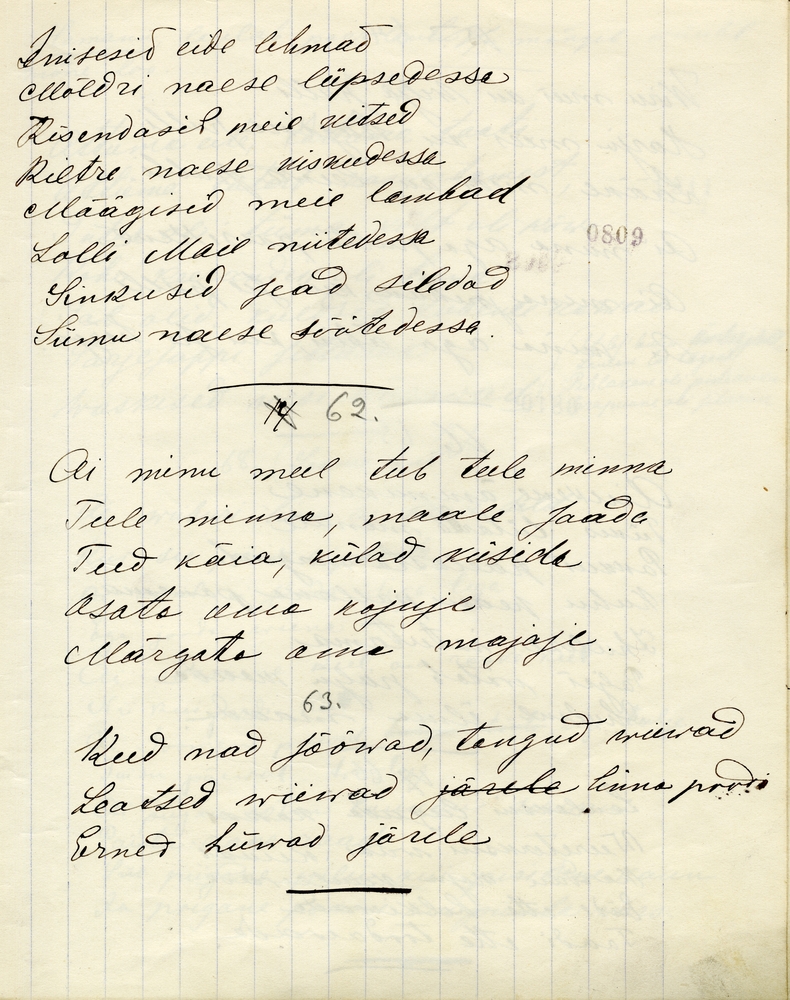 Inisesid eide lehmad
Möldri naese lüpsedessa
Kisendasid meie kitsed
Rietre naese kiskudessa
Määgisid meie lambad
Lolli Maie niitedessa
0809
Sinkusid sead siledad
Siimu naese söötedessa.
62.
Ai minu meel teeb teele minna
Teele minna, maale saada
Teed käia, külad küsida
Osata oma kojuje
Märgata oma majaje.
63.
Keed nad sööwad, tangud wiiwad
Leatsed wiiwad järele linna poodi
Erned hüwad järele